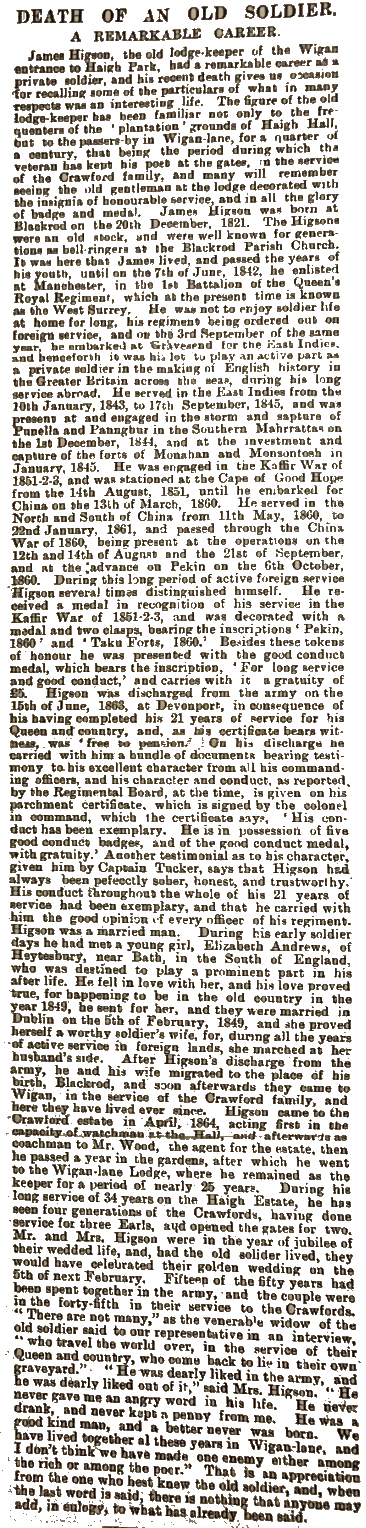 DEATH OF AN OLD SOLDIER.
A REMARKABLE CAREER.
James Higson, the old lodge-keeper of the Wigan
entrance to Haigh Park, had a remarkable career as a
private soldier, and his recent death gives us occasion
for recalling some of the particulars of what in many
respects was an interesting life. The figure of the old
lodge-keeper has been familiar not only to the fre-
quenters of the 'plantation' grounds of Haigh Hall,
but to the passers-by in Wigan-lane, for a quarter of
a century, that being the period during which the
veteran has kept his post at the gates, in the service
of the Crawford family, and many will remember
seeing the old gentleman at the lodge decorated with
the insignia of honourable service, and in all the glory
of badge and medal. James Higson was born at
Blackrod on the 20th December, 1821. The Higsons
were an old stock, and were well known for genera-
tions as bell-ringers at the Blackrod Parish Church.
It was here that James lived, and passed the years of
his youth, until on the 7th of June, 1842, he enlisted
at Manchester, in the 1st Battalion of the Queen's
Royal Regiment, which at the present time is known
as the West Surrey. He was not to enjoy soldier life
at home for long, his regiment being ordered out on
foreign service, and on the 3rd September of the same
year, he embarked at Gravesend for the East Indies,
and henceforth it was his lot to play an active part as
a private soldier in the making of English history in
the Greater Britain across the seas, during his long
service abroad. He served in the East Indies from the
10th January, 1843, to 17th September, 1845, and was
present at and engaged in the storm and capture of
Punella and Pannghur in the Southern Mahrrattas on
the 1st December, 1844, and at the investment and
capture of the forts of Monahan and Monsontosh in
January, 1845. He was engaged in the Kaffir War of
1851-2-3, and was stationed at the Cape of Good Hope
from the 14th August, 1851, until he embarked for
China on the 13th of March, 1860. He served in the
North and South of China from 11th May, 1860, to
22nd January, 1861, and passed through the China
War of 1860, being present at the operations on the
12th and 14th of August and the 21st of September,
and at the advance on Pekin on the 6th October,
1860. During this long period of active foreign service
Higson several times distinguished himself. He re-
ceived a medal in recognition of his service in the
Kaffir War of 1851-2-3, and was decorated with a
medal and two clasps, bearing the inscriptions 'Pekin,
1860' and 'Taku Forts, 1860.' Besides these tokens
of honour he was presented with the good conduct
medal, which bears the inscription, 'For long service
and good conduct,' and carries with it a gratuity of
£5. Higson was discharged from the army on the
15th of June, 1863, at Devonport, in consequence of
his having completed his 21 years of service for his
Queen and country, and, as his certificate bears wit-
ness, was 'free to pension.' On his discharge he
carried with him a bundle of documents bearing testi-
mony to his excellent character from all his command-
ing officers, and his character and conduct, as reported
by the Regimental Board, at the time, is given on his
parchment certificate, which is signed by the colonel
in command, which the certificate says, 'His con-
duct has been exemplary. He is in possession of five
good conduct badges, and of the good conduct medal,
with gratuity.' Another testimonial as to his character,
given him by Captain Tucker, says that Higson had
always been pefeectly sober, honest, and trustworthy.
His conduct throughout the whole of his 21 years of
service had been exemplary, and that he carried with
him the good opinion of every officer of his regiment.
Higson was a married man. During his early soldier
days he had met a young girl, Elizabeth Andrews, of
Heytesbury, near Bath, in the South of England,
who was destined to play a prominent part in his
after life. He fell in love with her, and his love proved
true, for happening to be in the old country in the
year 1849, he sent for her, and they were married in
Dublin on the 5th of February, 1849, and she proved
herself a worthy soldier's wife, for, during all the years
of active service in foreign lands, she marched at her
husband's side. After Higson's discharge from the
army, he and his wife migrated to the place of his
birth, Blackrod, and soon afterwards they came to
Wigan, in the service of the Crawford family, and
here they have lived ever since. Higson came to the
Crawford estate in April, 1864, acting first in the
capacity of watchman at the Hall, and afterwards as
coachman to Mr. Wood, the agent for the estate, then
he passed a year in the gardens, after which he went
to the Wigan-lane Lodge, where he remained as the
keeper for a period of nearly 25 years. During his
long service of 34 years on the Haigh Estate, he has
seen four generations of the Crawfords, having done
service for three Earls, and opened the gates for two.
Mr. and Mrs. Higson were in the year of jubilee of
their wedded life, and, had the old solider lived, they
would have celebrated their golden wedding on the
5th of next February. Fifteen of the fifty years had
been spent together in the army, and the couple were
in the forty-fifth in their service to the Crawfords.
"There are not many," as the venerable widow of the
old soldier said to our representative in an interview,
"who travel the world over, in the service of their
Queen and country, who come back to lie in their own
graveyard." "He was dearly liked in the army, and
he was dearly liked out of it," said Mrs. Higson. "He
never gave me an angry word in his life. He never
drank, and never kept a penny from me. He was a
good kind man, and a better never was born. We
have lived together al these years in Wigan-lane, and
I don't think we have made one enemy either among
the rich or among the poor." That is an appreciation
from the one who best knew the old soldier, and, when
the last word is said, there is nothing that anyone may
add, in eulogy, to what has already been said.